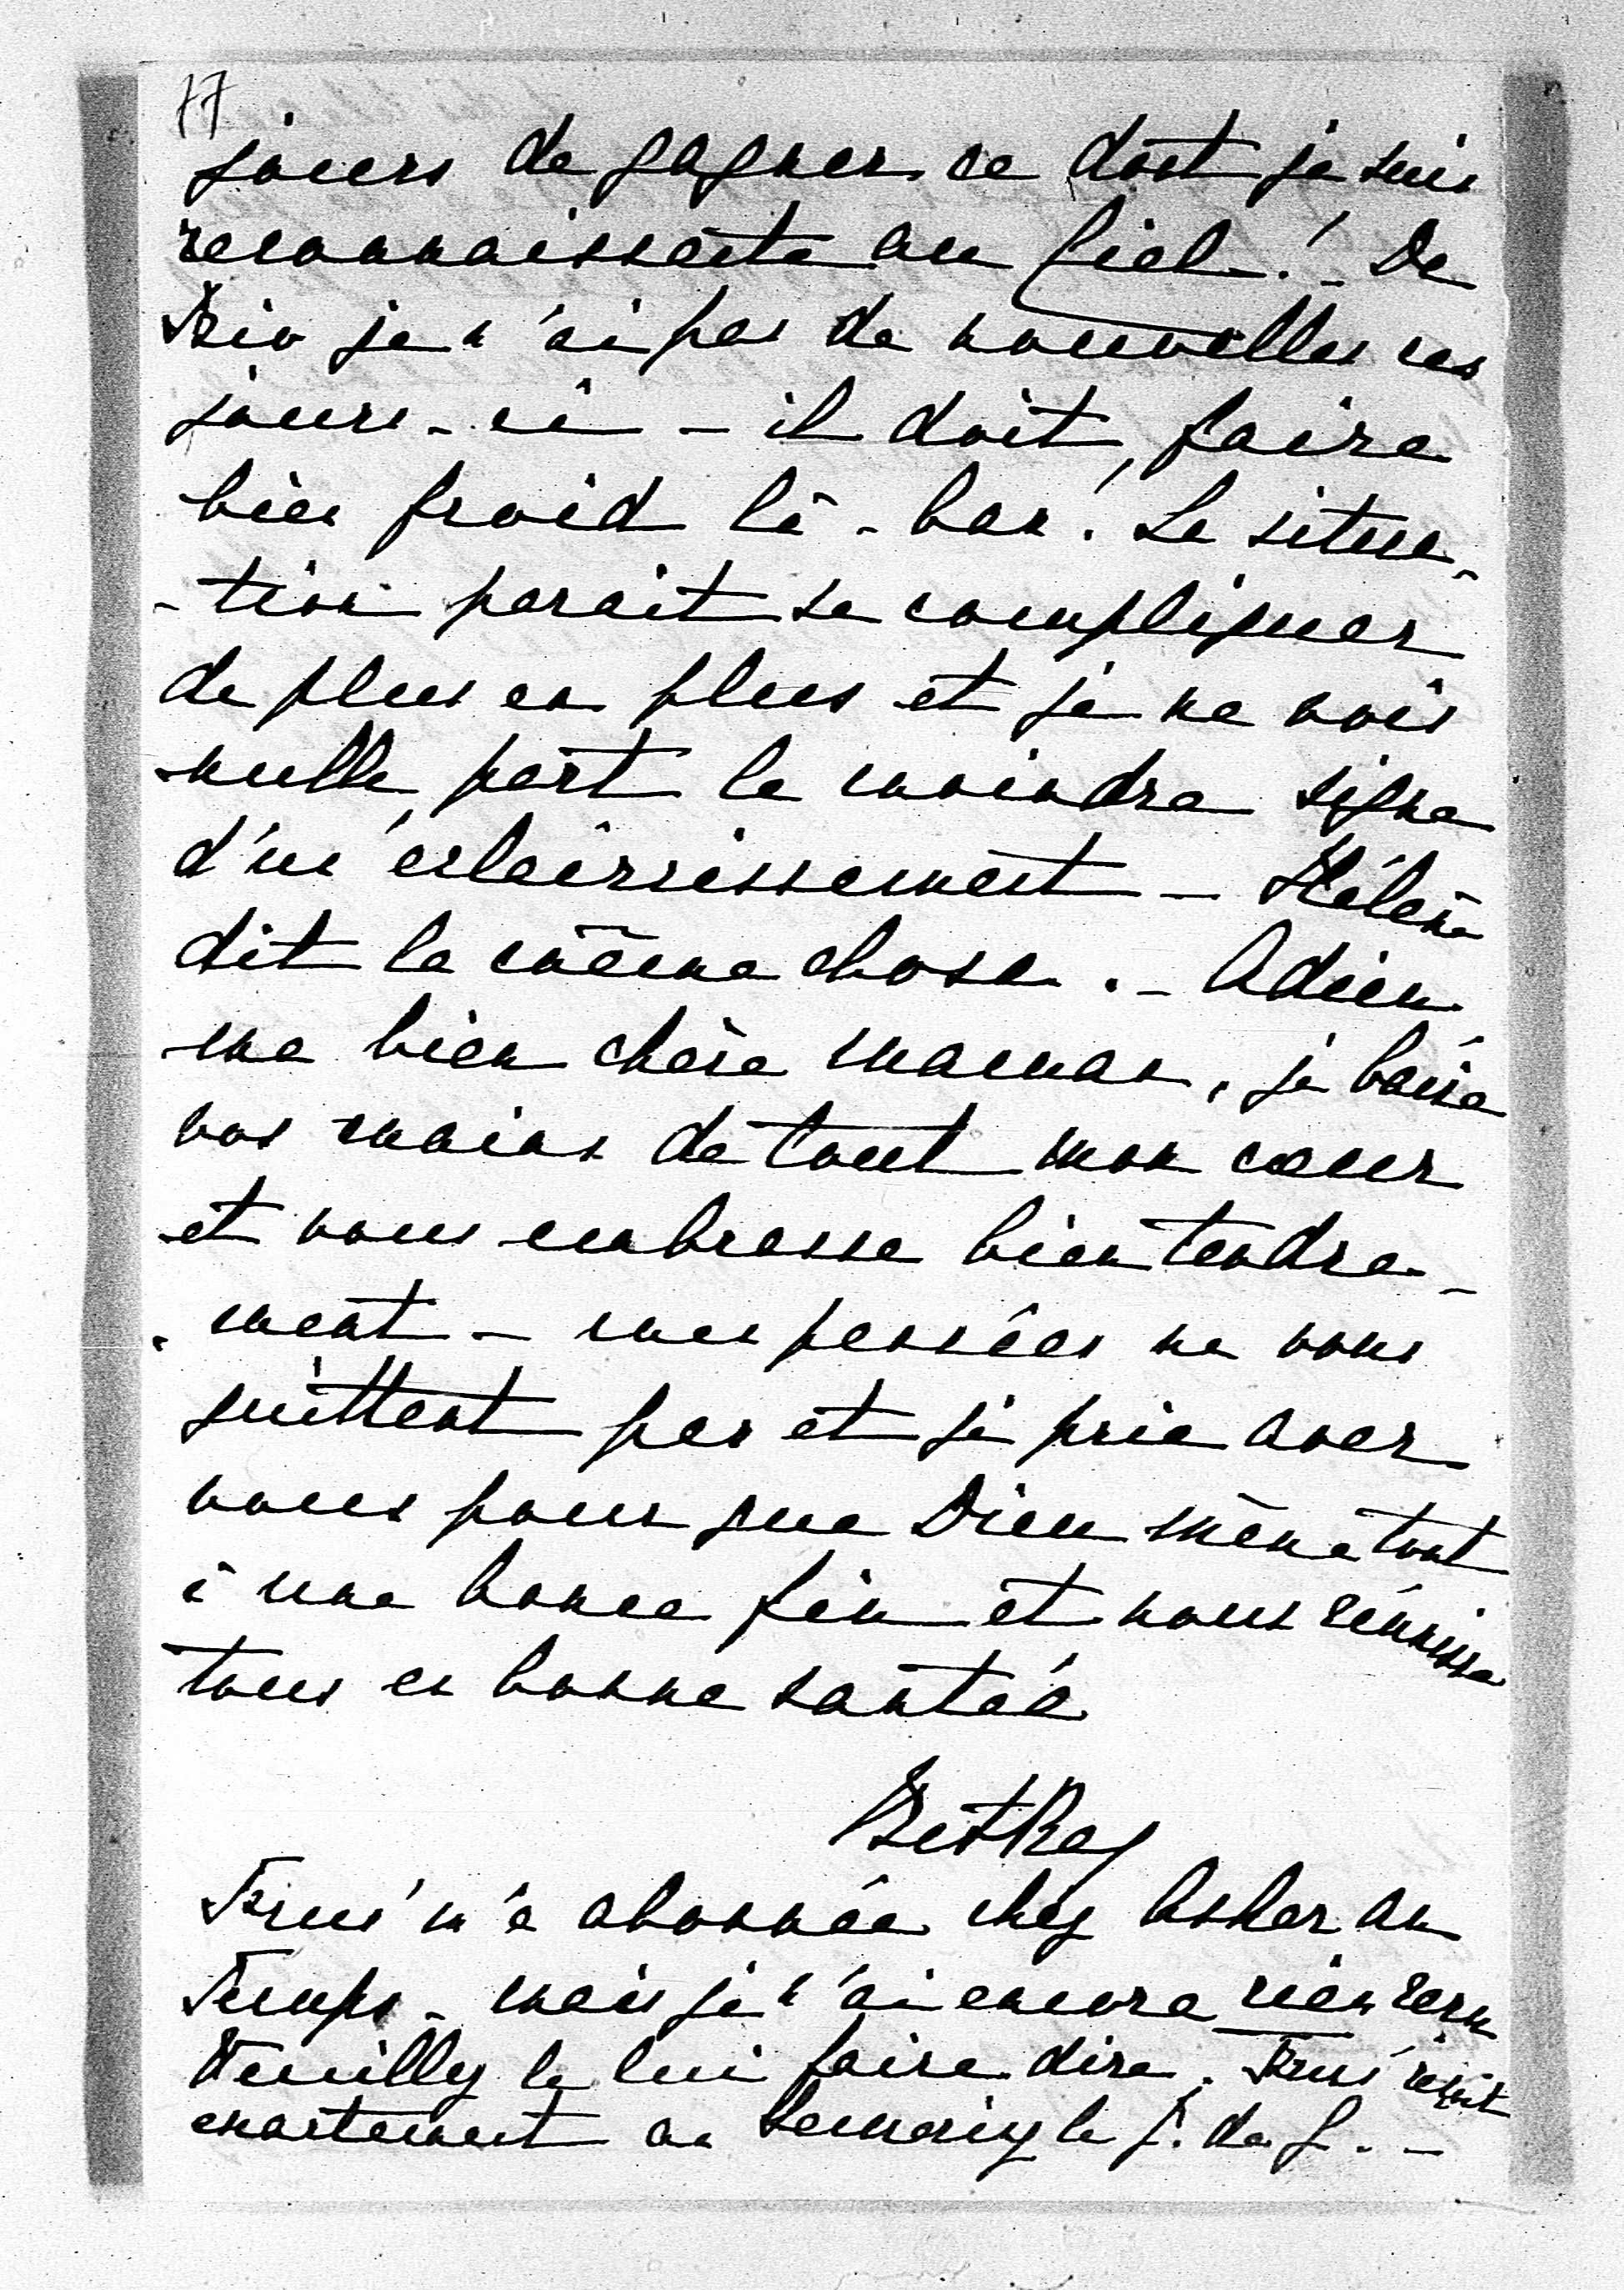 77
jours de gagner ce dont je suis
reconnaissante au Ciel! - De
Trio je n'ai pas de nouvelles ces
jours-ci - il doit faire
bien froid là-bas! La situa-
-tion parait se compliquer
de plus en plus et je ne vois
nulle part le moindre signe
d'un éclaircissement - Hélène
dit la même chose. - Adieu
ma bien chère maman, je baise
vos mains de tout mon cœur
et vous embrasse bien tendre-
-ment - mes pensées ne vous
quittent pas et je prie avec
vous pour que Dieu mène tout
à une bonne fin et nous réunisse
tous en bonne santée
m'a abonnée chez Asher au
Temps - mais je n'ai encore rien reçu
Veuilly le lui faire dire. reçoit
exactement au le J. de